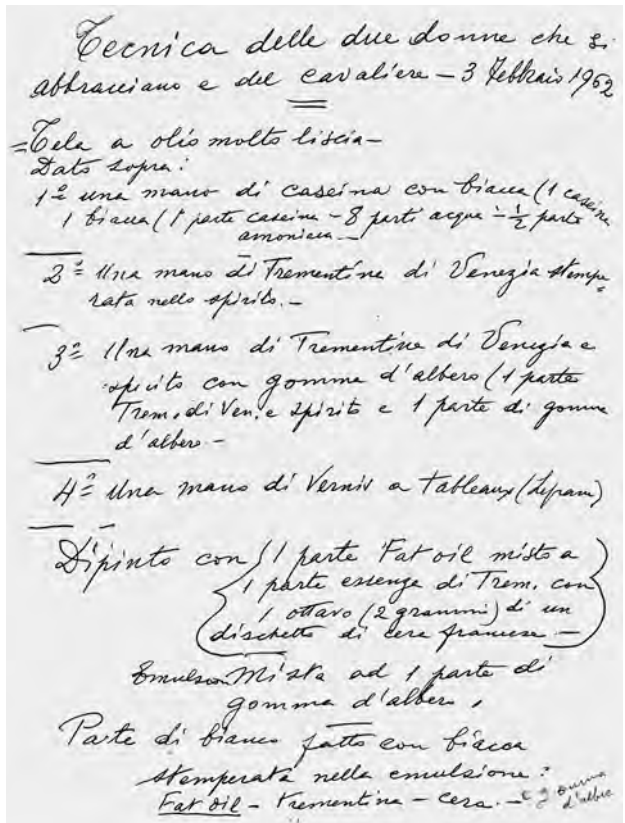 Tecnica delle due donne che si
abbracciano e del cavaliere – 3 Febbraio 1962
= Tela a olio molto liscia –
Dato sopra:
1º una mano di caseina con biacca (1 caseina
1 biacca (1 parte caseina – 8 parti acqua – ½ parte
amoniaca –
2º Una mano di Trementina di Venezia stempe=
rata nello spirito. –
3º Una mano di Trementina di Venezia e
spirito con gomma d'albero (1 parte
Trem. di Ven. e spirito e 1 parte di gomma
d'albero –
4º Una mano di Vernis a tableaux (Lefranc)
Dipinto con (1 parte Fat oil misto a
1 parte essenza di Trem. con
1 ottavo (2 grammi) di un
dischetto di cera francese –)
Emulsion Mista ad 1 parte di
gomma d'albero,
Parte di bianco fatto con biacca
stemperata nella emulsione:
Fat oil – trementina – cera. – e gomma
d'albero